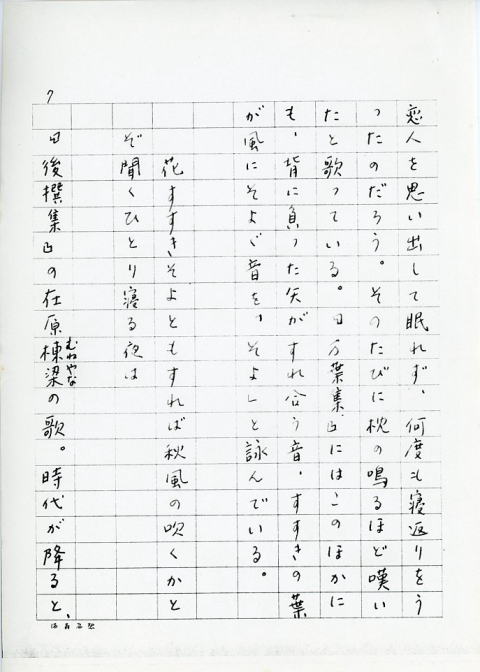 7
恋人を思い出して眠れず、何度も寝返りをう
ったのだろう。そのたびに枕の鳴るほど嘆い
たと歌っている。『万葉集』にはこのほかに
も、背に負った矢がすれ合う音、すすきの葉
が風にそよぐ音を、「そよ」と詠んでいる。
花すすきそよともすれば秋風の吹くかと
ぞ聞くひとり寝る夜は
『後撰集』の在原棟梁の歌。時代が降ると、
むねやな